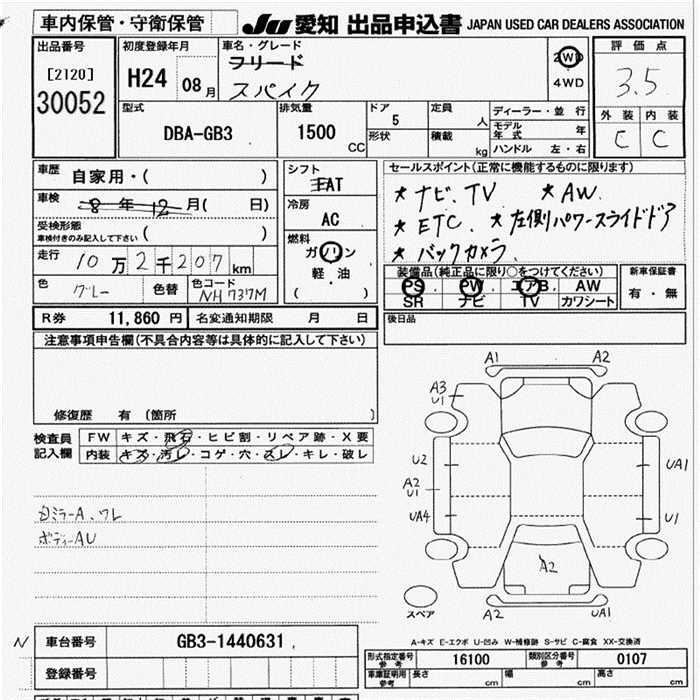 車内保管・守衛保管
JU 愛知 出品申込書 JAPAN USED CAR DEALERS ASSOCIATION
出品番号
[2120]
30052
初度登録年月
H24 08月
車名・グレード
フリード
スパイク
2WD
4WD
評価点
3.5
外装 内装
C C
型式
DBA-GB3
排気量
1500
CC
ドア
5
形状
定員
人
積載
kg
ディーラー・並行
モデル年式 年
ハンドル 左・右
車歴
自家用・( )
車検
8年12月( 日)
受検形態
車検付きのみ記入して下さい ( )
走行
10万2千207km
色
グレー
色替
色コード
NH737M
シフト
AT
冷房
AC
燃料
ガソリン
軽・油
( )
セールスポイント(正常に機能するものに限ります)
★ナビ、TV ★AW
★ETC、★左側パワースライドドア
★バックカメラ
装備品(純正品に限り○をつけてください)
PS PW エアB AW
SR ナビ TV カワシート
新車保証書
有・無
R券 11,860円 名変通知期限 月 日
後日品
注意事項申告欄(不具合内容等は具体的に記入して下さい)
修復歴 有 (箇所 )
検査員記入欄
FW キズ・飛石・ヒビ割・リペア跡・X要
内装 キズ・汚レ・コゲ・穴・スレ・キレ・破レ
ミラーA、ワレ
ボディーAU
A1 A2
A3
U1
U2
A2
U1
UA4
UA1
U1
A2
スペア
A2 UA1
A-キズ E-エクボ U-凹み W-補修跡 S-サビ C-腐食 XX-交換済
N
車台番号 GB3-1440631
登録番号
形式指定番号 参考 16100 類別区分番号 参考 0107
車庫証明 参考 長さ cm 幅 cm 高さ cm